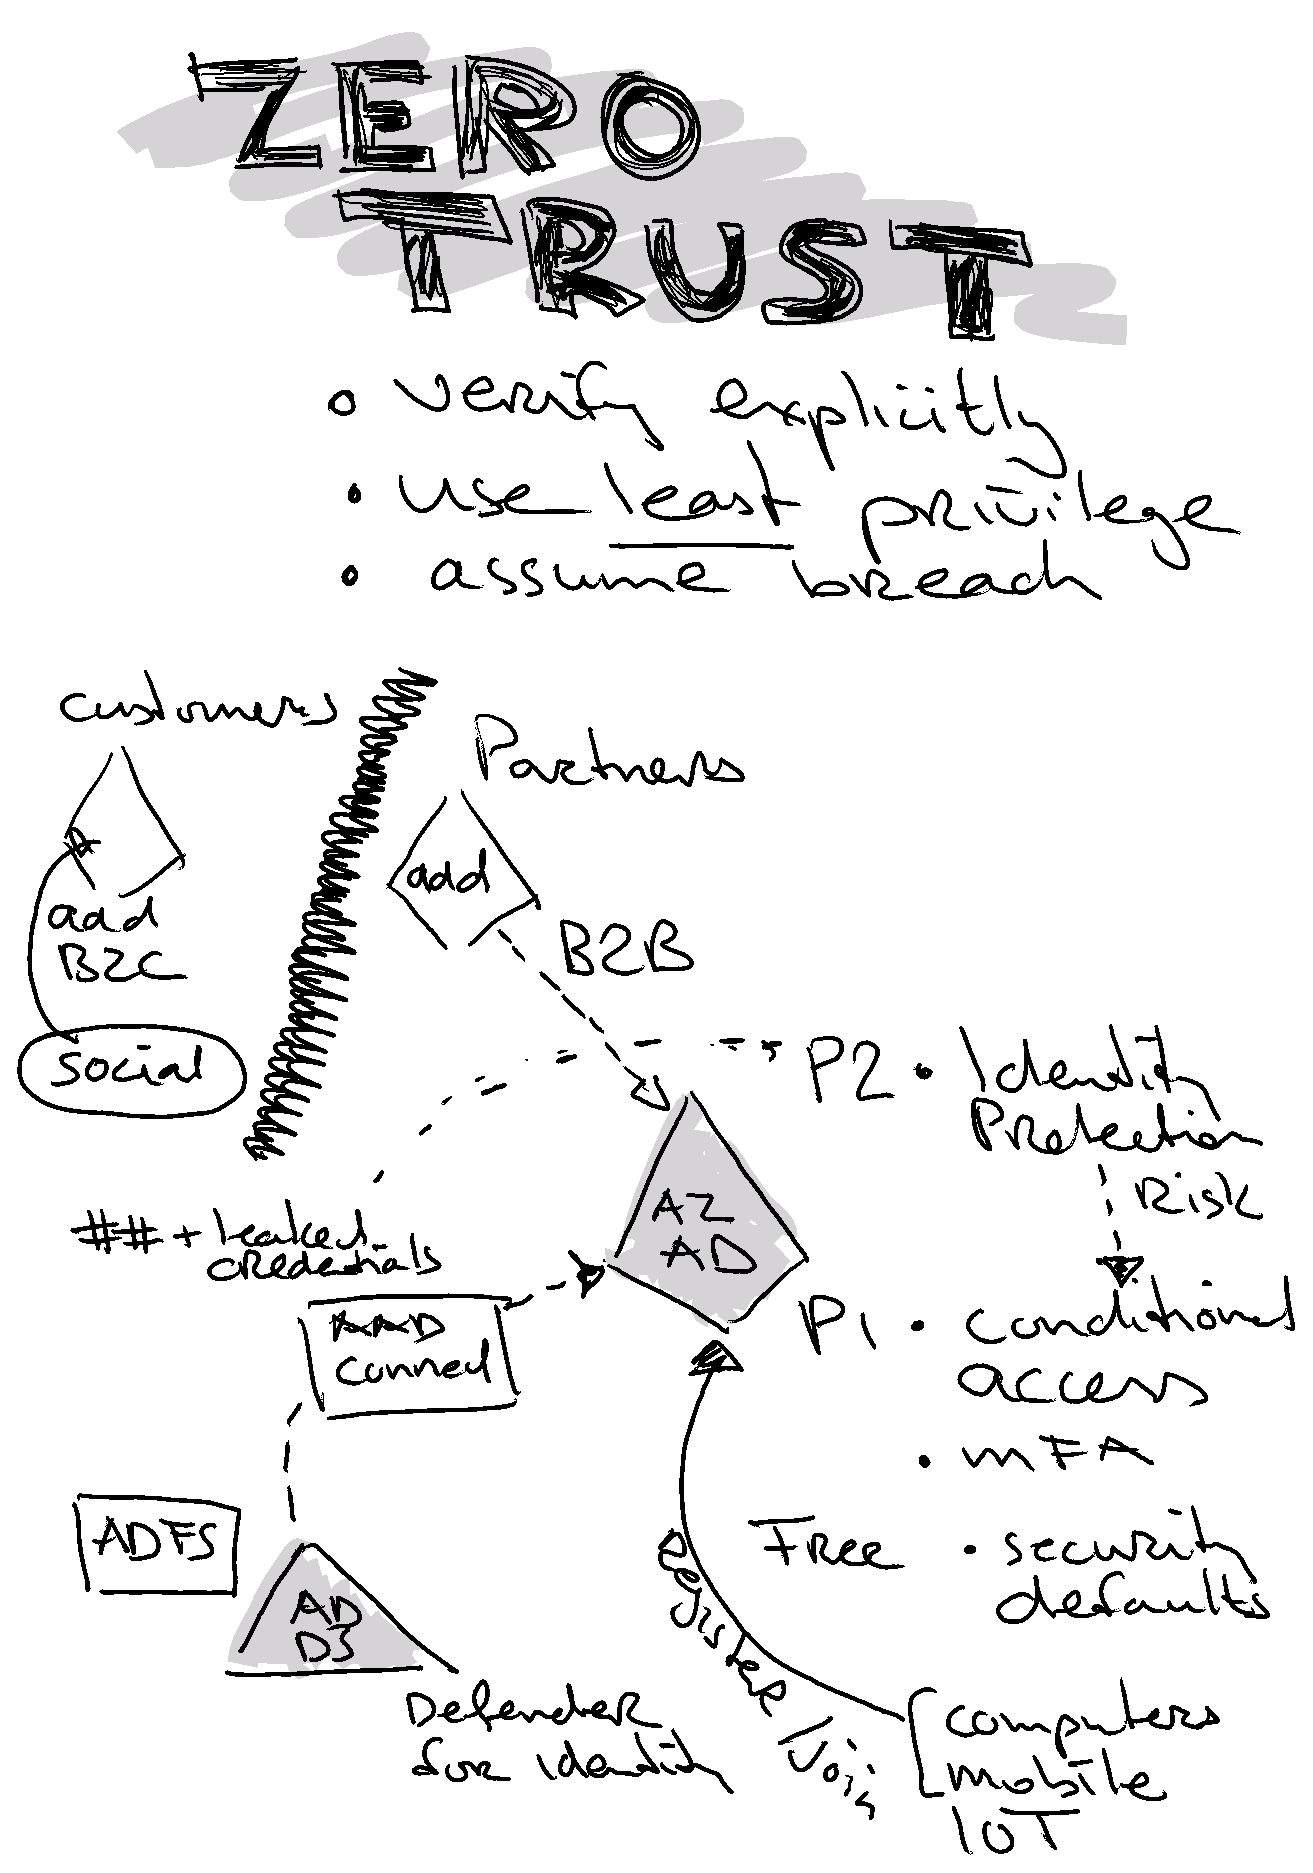 ZERO
TRUST
verify explicitly
use least privilege
assume breach
customers
Partners
add
aad
B2C
B2B
social
P2 • Identity
Protection
Risk
AZ
AD
## + leaked
credentials
AAD
connect
P1 • conditional
access
• MFA
ADFS
Free • security
defaults
AD
DS
Register / Join
Defender
for identity
computers
mobile
IOT